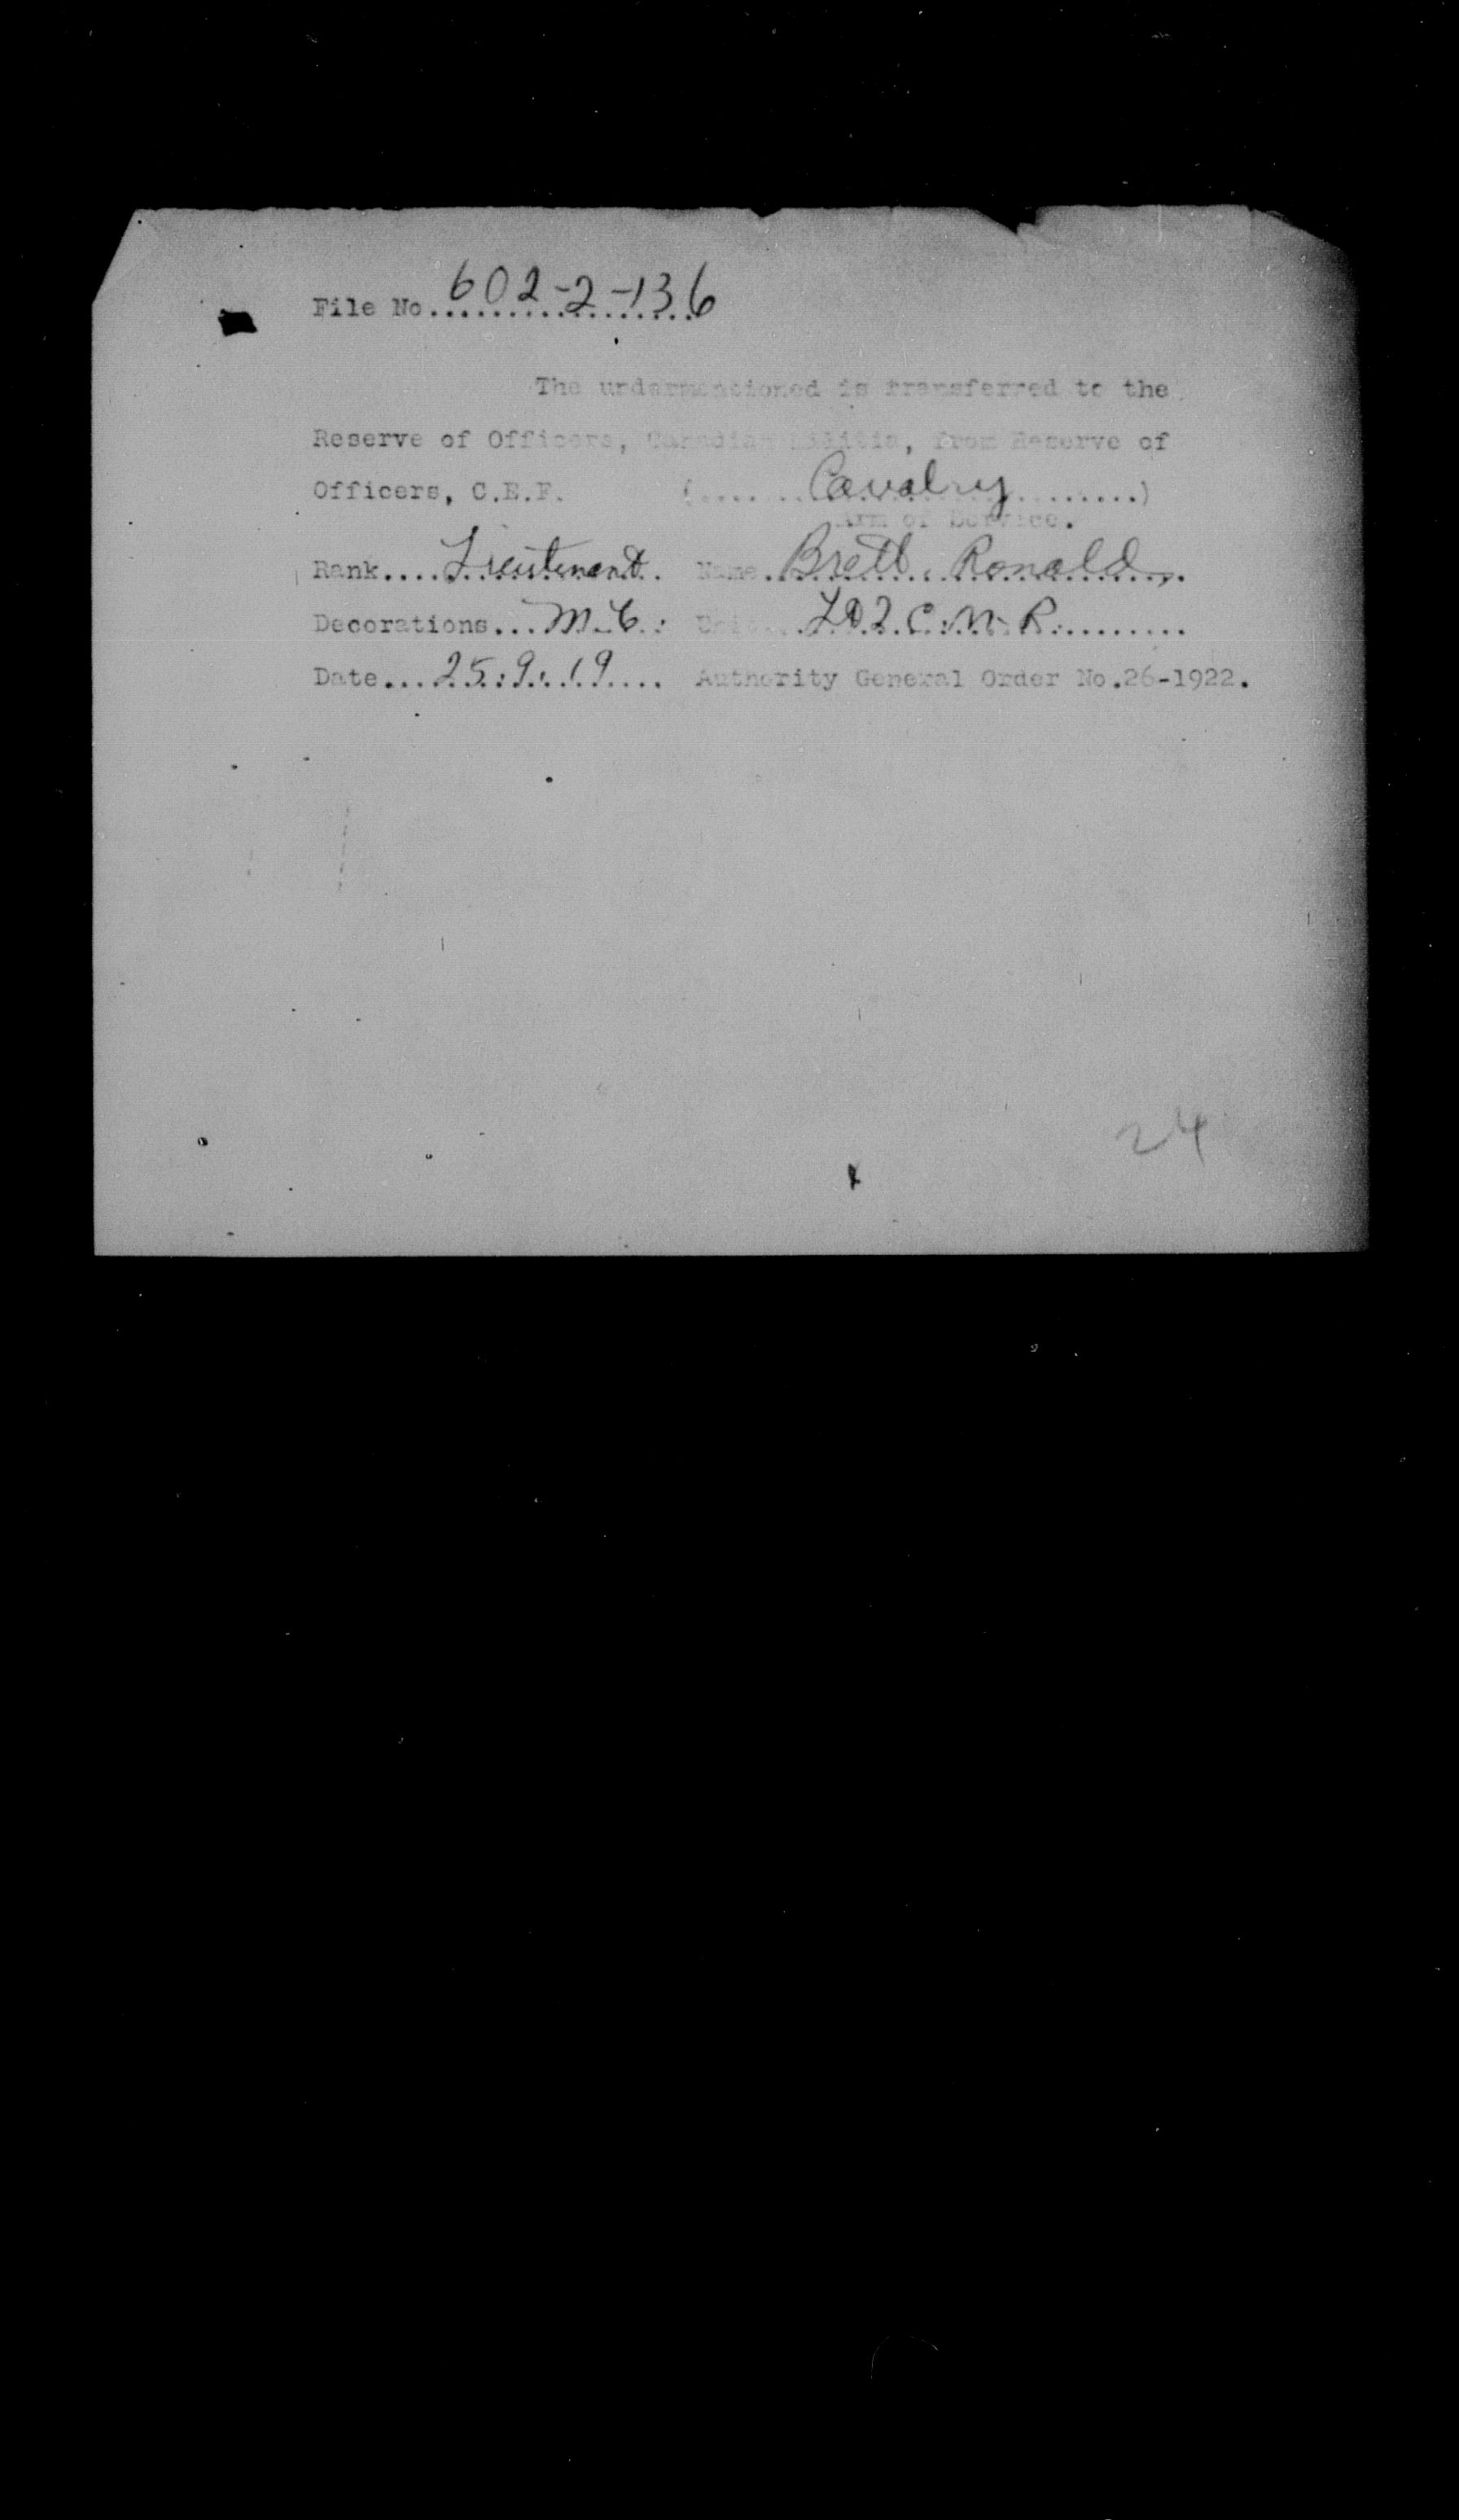 File No. 602-2-136
The undermentioned is transferred to the
Reserve of Officers, Canadian Militia, from Reserve of
Officers, C.E.F. (.......Cavalry.........)
Arm of Service.
Rank....Lieutenant. Name.Brett, Ronald,
Decorations...M.C. Unit 2 C.M.R.
Date...25.9.19.... Authority General Order No.26-1922.
24